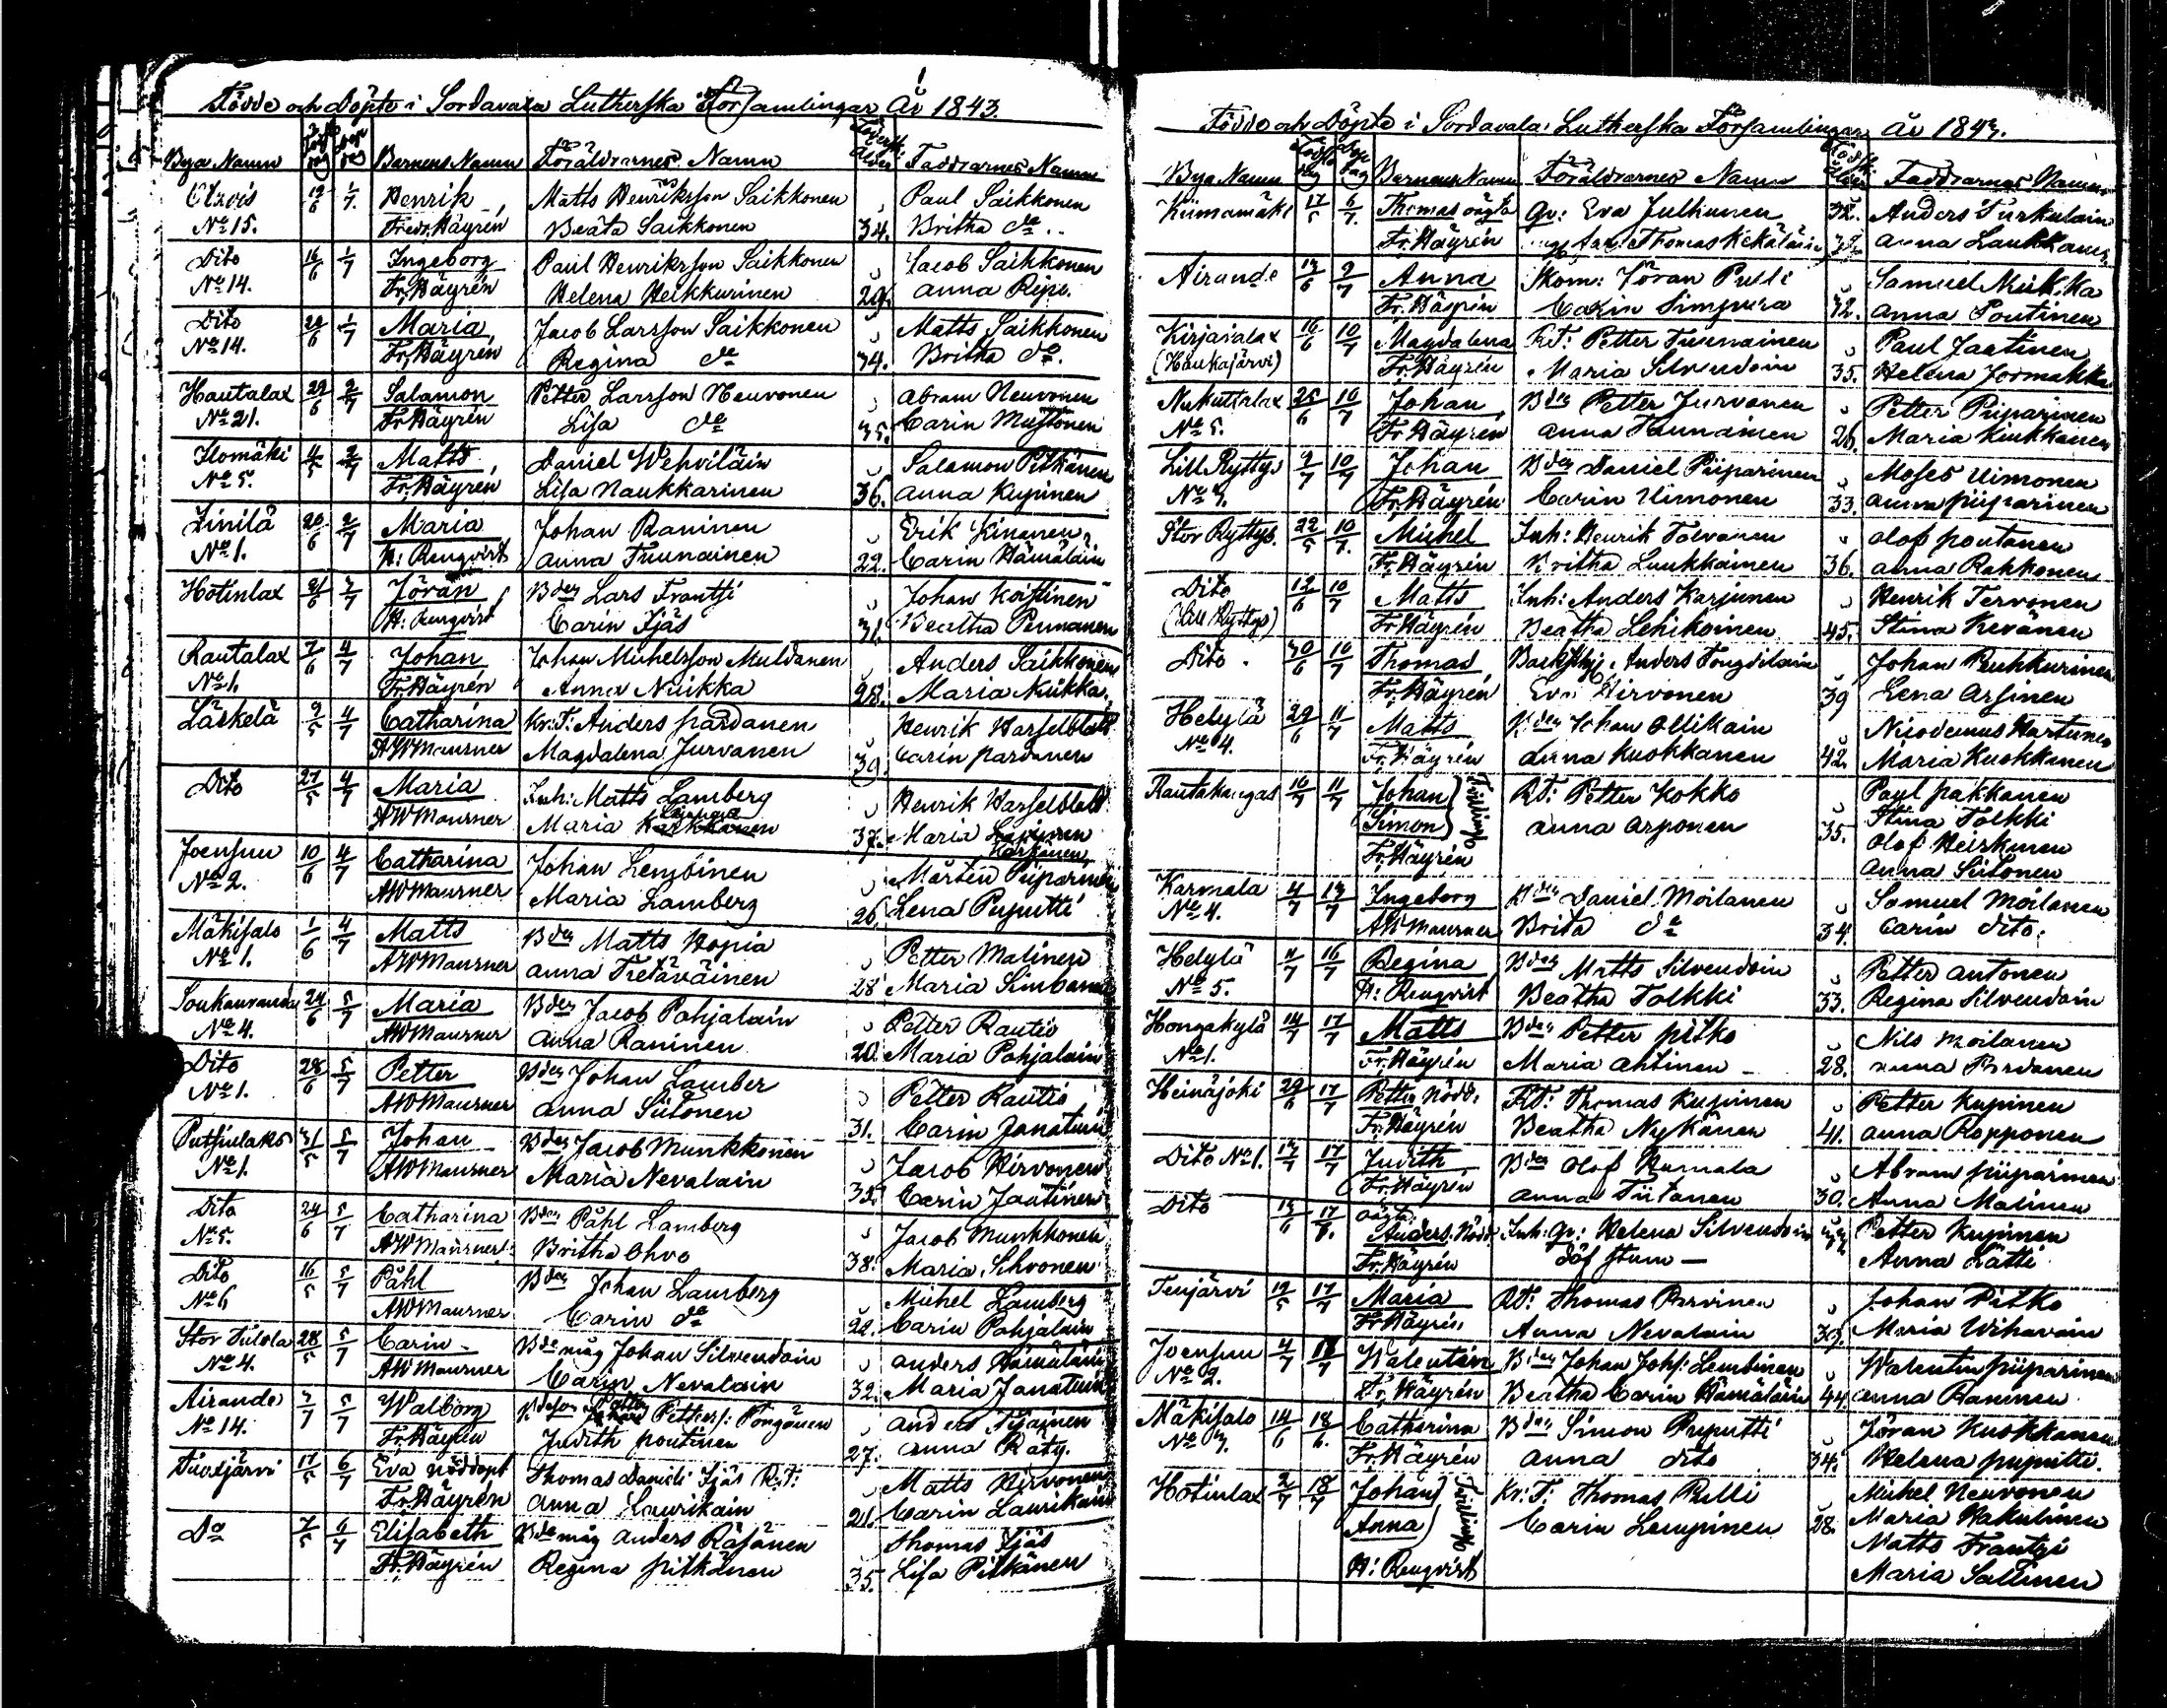 Födde och Döpte i Sordavala Lutherska Församlingar År 1843.
Bya Namn Barnens Namn Föräldrarnes Namn Ålder Faddrarnes Namn
19/6 1/7 Henrik Matts Henriksson Saikkonen " Paul Saikkonen
No 15. Fredr. Häyrén Beata Saikkonen 34. Britha do
Dito 16/6 1/7 Ingeborg Paul Henriksson Saikkonen " Jacob Saikkonen
No 14. Fr. Häyrén Helena Heikkurinen 29. Anna Repo.
Dito 20/6 1/7 Maria Jacob Larsson Saikkonen " Matts Saikkonen
No 14. Fr. Häyrén Regina do 34. Britha do.
Hautalax 29/6 2/7 Salamon Petter Larsson Neuvonen " Abram Neuvonen
No 21. Fr. Häyrén Lisa do 35. Carin Mustonen
Ilomäki 4/5 2/7 Matts Daniel Wehviläin " Salamon Pitkänen
No 5. Fr. Häyrén Lisa Naukkarinen 36. Anna Kupinen
Linilä 20/6 2/7 Maria Johan Raninen " Erik Kinanen
No 1. H: Renqvist Anna Tuunainen 22. Carin Hämäläin
Hotinlax 21/6 3/7 Jöran Bden Lars Frantsi " Johan Koistinen
H: Renqvist Carin Ijäs 31. Beatha Pennanen
Rautalax 7/6 4/7 Johan Johan Michelsson Muldanen " Anders Saikkonen
No 1. Fr. Häyrén Anna Nuikka 28. Maria Nuikka
Läskelä 9/5 4/7 Catharina Kr: T: Anders Pardanen Henrik Hasselblatt
AWMausner Magdalena Jurvanen 39. Carin Pardanen
Dito 27/5 4/7 Maria Inh: Matts Lamberg " Henrik Hasselblatt
AWMausner Maria 37. Maria
Joensuu 10/6 4/7 Catharina Johan Lembinen " Mårten Piiparinen
No 2. AWMausner Maria Lamberg 26. Lena Puputti
Mäkisalo 1/6 4/7 Matts Bden Matts Hopia " Petter Malinen
No 1. AWMausner Anna Tretäväinen 28 Maria Simbanen
Soukanranda 24/6 5/7 Maria Bden Jacob Pohjalain " Petter Rautio
No 4. AWMausner Anna Raninen 20. Maria Pohjalain
Dito 28/6 5/7 Petter Bden Johan Lamber " Petter Rautio
No 1. AWMausner Anna Siitonen 31. Carin Janatuin
Putsinlaks 31/5 5/7 Johan Bden Jacob Munkkonen " Jacob Hirvonen
No 1. AWMausner Maria Nevalain 32. Carin Jaatinen
Dito 24/6 5/7 Catharina Bden Påhl Lamberg " Jacob Munkkonen
No 5. AWMausner Britha Ohvo 38. Maria Ihvonen
Dito 16/5 5/7 Påhl Bden Johan Lamberg Michel Lamberg
No 6 AWMausner Carin do 22. Carin Pohjalain
Stor Tulola 28/5 5/7 Carin Bde måg Johan Silvendoin " Anders Hämäläin
No 4. AWMausner Carin Nevalain 32. Maria Janatuin
Airande 3/7 5/7 Walborg Petters: Pongonen " Anders Ijäinen
No 14. Fr. Häyrén Judith Poutinen 27. Anna Räty.
17/5 6/7 Eva nöddöpt Thomas Daniels: Ijäs R.T. " Matts Hirvonen
Fr. Häyrén Anna Laurikain 21. Carin Laurikain
Do 7/5 6/7 Elisabeth Bde måg Anders Räsänen Thomas Ijäs
Fr. Häyrén Regina Pitkänen 35. Lisa Pitkänen
Födde och Döpte i Sordavala Lutherska Församlingar År 1843.
Bya Namn Barnens Namn Föräldrarnes Namn Ålder Faddrarnes Namn
Kiimamäki 17/5 6/7 Thomas oägta Qv: Eva Julkunen 32. Anders Turkulain
Fr. Häyrén Thomas Kekäläin Anna Laukkanen
Airande 13/6 9/7 Anna Skom: Jöran Pulli " Samuel Nuikka
Fr. Häyrén Carin Simpura 42. Anna Poutinen
Kirjavalax 16/6 10/7 Magdalena RT: Petter Tuunainen " Paul Jaatinen
(Haukajärvi) Fr. Häyrén Maria Silvendoin 35. Helena Jormakka
Nukuttalax 25/6 10/7 Johan Bden Petter Jurvanen " Petter Piiparinen
No 5. Fr. Häyrén Anna Tuunainen 26. Maria Kiukkanen
Lill Ryttys 9/7 10/7 Johan Bden Daniel Piiparinen " Moses Uimonen
No 3. Fr. Häyrén Carin Uimonen 33. Anna Piiparinen
Stor Ryttys. 22/5 10/7. Michel Inh: Henrik Toivanen " Olof Poutanen
Fr. Häyrén Britha Luukkainen 36. Anna Rakkonen
Dito 12/6 10/7 Matts Inh: Anders Karjunen " Henrik Tervonen
(Lill Ryttys) Fr. Häyrén Beatha Lehikoinen 45. Stina Hevänen
Dito. 30/6 10/7 Thomas Anders Tongilain Johan Ruhkurinen
Fr. Häyrén Eva Hirvonen 39 Lena Arsinen
Helylä 29/6 11/7 Matts Bden Johan Ollikain " Nicodemus Hartunen
No 4. Fr. Häyrén Anna Kuokkanen 42. Maria Kuokkanen
Rautakangas 10/7 11/7 Johan Tvillingar RT: Petter Kokko " Paul Pakkanen
Simon Anna Arponen 35. Stina Tolkki
Fr. Häyrén Olof Heiskunen
Anna Siitonen
Karmala 4/7 13/7 Ingeborg Bden Daniel Moilanen " Samuel Moilanen
No 4. AWMausner Brita do 34. Carin dito.
Helylä 11/7 16/7 Regina Bden Matts Silvendoin " Petter Antonen
No 5. H: Renqvist Beatha Tolkki 33. Regina Silvendoin
Hongakylä 14/7 17/7 Matts Bden Petter Pitko " Nils Moilanen
No 1. Fr. Häyrén Maria Ahtinen 28. Anna Pardanen
Heinäjoki 29/6 17/7 Petter Nödd. RT: Thomas Kupinen " Petter Kupinen
Fr. Häyrén Beatha Nykänen 41. Anna Ropponen
Dito No 1. 13/7 17/7 Judith Bden Olof Kumala " Abram Piiparinen
Fr. Häyrén Anna Tiitanen 30. Anna Malinen
Dito 13/6 17/7. oägta Anders. Nödd. Inh: Qv: Helena Silvendoin Petter Kupinen
Fr. Häyrén döf stum — Anna Lätti
Tenjärvi 19/5 17/7 Maria RT: Thomas Parvinen " Johan Pitko
Fr. Häyrén Anna Nevalain 39. Maria Wihavain
Joensuu 4/7 18/7 Walentin Bden Johan Johs: Lembinen " Walentin Piiparinen
No 2. Fr. Häyrén Beatha Carin Hämäläin 44. Anna Raninen
Mäkisalo 14/6 18/6. Catharina Bden Simon Puputti " Jöran Kuokkanen
No 3. Fr. Häyrén Anna dito 34. Helena Puputti.
Hotinlax 2/7 18/7 Johan Tvillingar Kr: T: Thomas Pulli Michel Neuvonen
Anna Carin Lempinen 28. Maria Hakulinen
Matts Frantsi
H: Renqvist Maria Sallinen